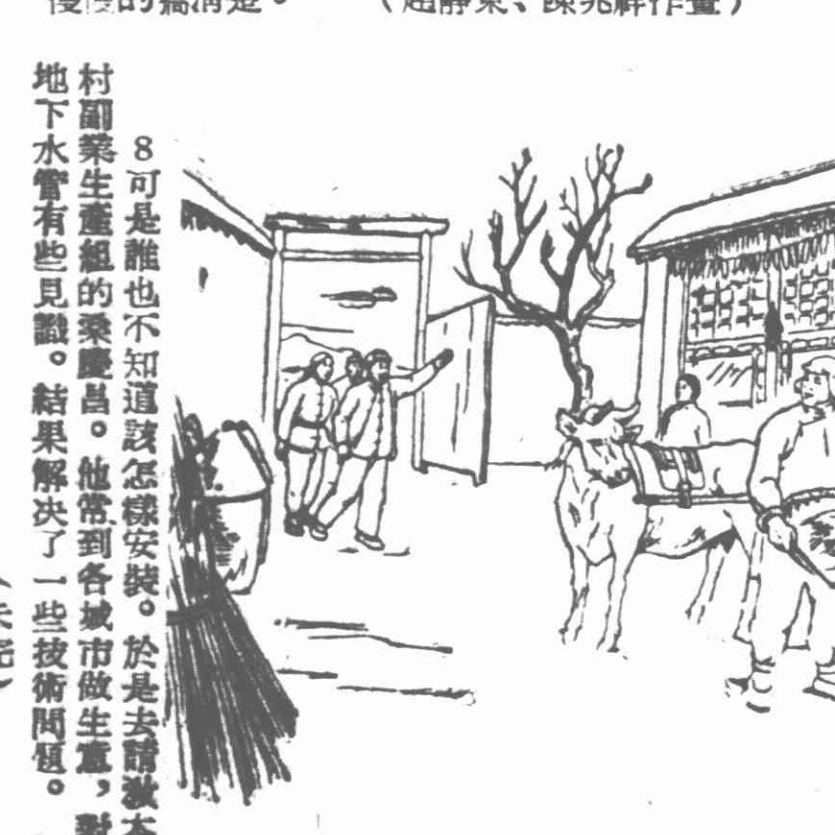 慢慢的搞清楚。
（趙靜東、陳兆祥作畫）
8可是誰也不知道該怎樣安裝。於是去請教本
村副業生產組的梁慶昌。他常到各城市做生意，對
地下水管有些見識。結果解决了一些技術問題。
（未完）